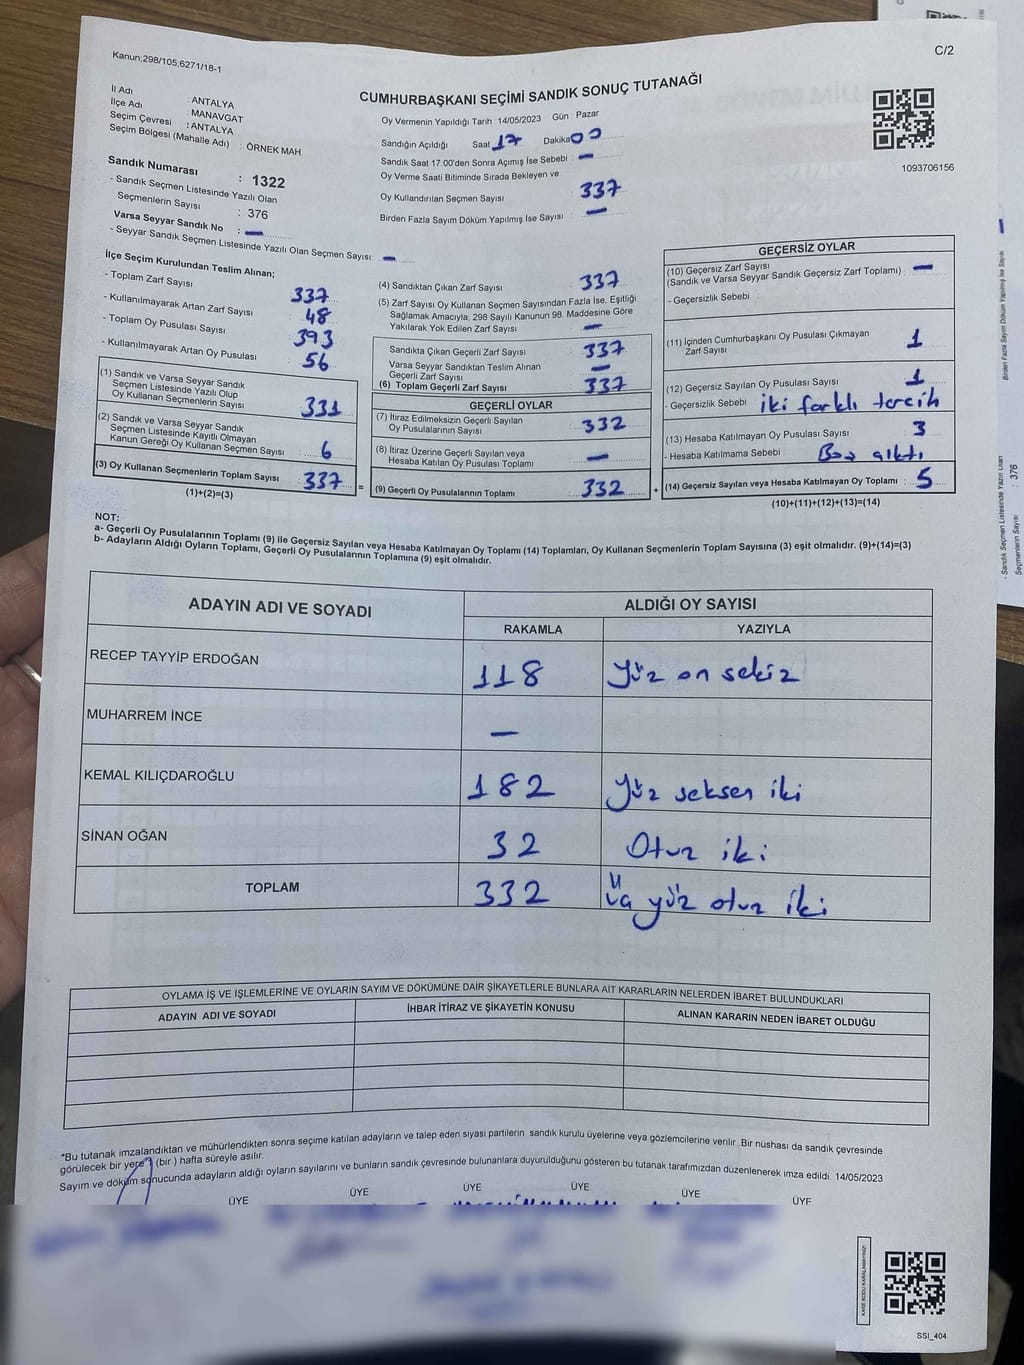 C/2
Kanun;298/105,6271/18-1
CUMHURBAŞKANI SEÇİMİ SANDIK SONUÇ TUTANAĞI
İl Adı : ANTALYA
İlçe Adı : MANAVGAT
Seçim Çevresi : ANTALYA
Seçim Bölgesi (Mahalle Adı) : ÖRNEK MAH.
Oy Vermenin Yapıldığı Tarih :14/05/2023 Gün : Pazar
Sandığın Açıldığı Saat 17 Dakika 00
Sandık Saat 17:00'den Sonra Açımış İse Sebebi : —
Oy Verme Saati Bitiminde Sırada Bekleyen ve
Oy Kullandırılan Seçmen Sayısı 337
Birden Fazla Sayım Döküm Yapılmış İse Sayısı : —
1093706156
Sandık Numarası : 1322
- Sandık Seçmen Listesinde Yazılı Olan
Seçmenlerin Sayısı : 376
Varsa Seyyar Sandık No : —
- Seyyar Sandık Seçmen Listesinde Yazılı Olan Seçmen Sayısı: —
İlçe Seçim Kurulundan Teslim Alınan;
- Toplam Zarf Sayısı 337
- Kullanılmayarak Artan Zarf Sayısı : 48
- Toplam Oy Pusulası Sayısı : 393
- Kullanılmayarak Artan Oy Pusulası : 56
(1) Sandık ve Varsa Seyyar Sandık
Seçmen Listesinde Yazılı Olup
Oy Kullanan Seçmenlerin Sayısı : 331
(2) Sandık ve Varsa Seyyar Sandık
Seçmen Listesinde Kayıtlı Olmayan
Kanun Gereği Oy Kullanan Seçmen Sayısı : 6
(3) Oy Kullanan Seçmenlerin Toplam Sayısı : 337 =
(1)+(2)=(3)
(4) Sandıktan Çıkan Zarf Sayısı : 337
(5) Zarf Sayısı Oy Kullanan Seçmen Sayısından Fazla İse, Eşitliği
Sağlamak Amacıyla; 298 Sayılı Kanunun 98. Maddesine Göre
Yakılarak Yok Edilen Zarf Sayısı : —
Sandıkta Çıkan Geçerli Zarf Sayısı : 337
Varsa Seyyar Sandıktan Teslim Alınan
Geçerli Zarf Sayısı : —
(6) Toplam Geçerli Zarf Sayısı : 337
GEÇERLİ OYLAR
(7) İtiraz Edilmeksizin Geçerli Sayılan
Oy Pusulalarının Sayısı : 332
(8) İtiraz Üzerine Geçerli Sayılan veya
Hesaba Katılan Oy Pusulası Toplamı : —
(9) Geçerli Oy Pusulalarının Toplamı : 332 +
GEÇERSİZ OYLAR
(10) Geçersiz Zarf Sayısı
(Sandık ve Varsa Seyyar Sandık Geçersiz Zarf Toplamı) : —
- Geçersizlik Sebebi :
(11) İçinden Cumhurbaşkanı Oy Pusulası Çıkmayan
Zarf Sayısı : 1
(12) Geçersiz Sayılan Oy Pusulası Sayısı : 1
- Geçersizlik Sebebi : iki farklı tercih
(13) Hesaba Katılmayan Oy Pusulası Sayısı : 3
- Hesaba Katılmama Sebebi : Boş çıktı
(14) Geçersiz Sayılan veya Hesaba Katılmayan Oy Toplamı : 5
(10)+(11)+(12)+(13)=(14)
NOT:
a- Geçerli Oy Pusulalarının Toplamı (9) ile Geçersiz Sayılan veya Hesaba Katılmayan Oy Toplamı (14) Toplamları, Oy Kullanan Seçmenlerin Toplam Sayısına (3) eşit olmalıdır. (9)+(14)=(3)
b- Adayların Aldığı Oyların Toplamı, Geçerli Oy Pusulalarının Toplamına (9) eşit olmalıdır.
ADAYIN ADI VE SOYADI ALDIĞI OY SAYISI
RAKAMLA YAZIYLA
RECEP TAYYİP ERDOĞAN 118 Yüz on sekiz
MUHARREM İNCE —
KEMAL KILIÇDAROĞLU 182 Yüz seksen iki
SİNAN OĞAN 32 Otuz iki
TOPLAM 332 Üç yüz otuz iki
OYLAMA İŞ VE İŞLEMLERİNE VE OYLARIN SAYIM VE DÖKÜMÜNE DAİR ŞİKAYETLERLE BUNLARA AİT KARARLARIN NELERDEN İBARET BULUNDUKLARI
ADAYIN ADI VE SOYADI İHBAR İTİRAZ VE ŞİKAYETİN KONUSU ALINAN KARARIN NEDEN İBARET OLDUĞU
*Bu tutanak imzalandıktan ve mühürlendikten sonra seçime katılan adayların ve talep eden siyasi partilerin sandık kurulu üyelerine veya gözlemcilerine verilir. Bir nüshası da sandık çevresinde
görülecek bir yere (bir ) hafta süreyle asılır.
Sayım ve döküm sonucunda adayların aldığı oyların sayılarını ve bunların sandık çevresinde bulunanlara duyurulduğunu gösteren bu tutanak tarafımızdan düzenlenerek imza edildi. 14/05/2023
ÜYE ÜYE ÜYE ÜYE ÜYE ÜYE
KARE KODU KARALAMAYINIZ!
SSI_404
Birden Fazla Sayım Döküm Yapılmış İse Sayısı
- Sandık Seçmen Listesinde Yazılı Olan
Seçmenlerin Sayısı : 376